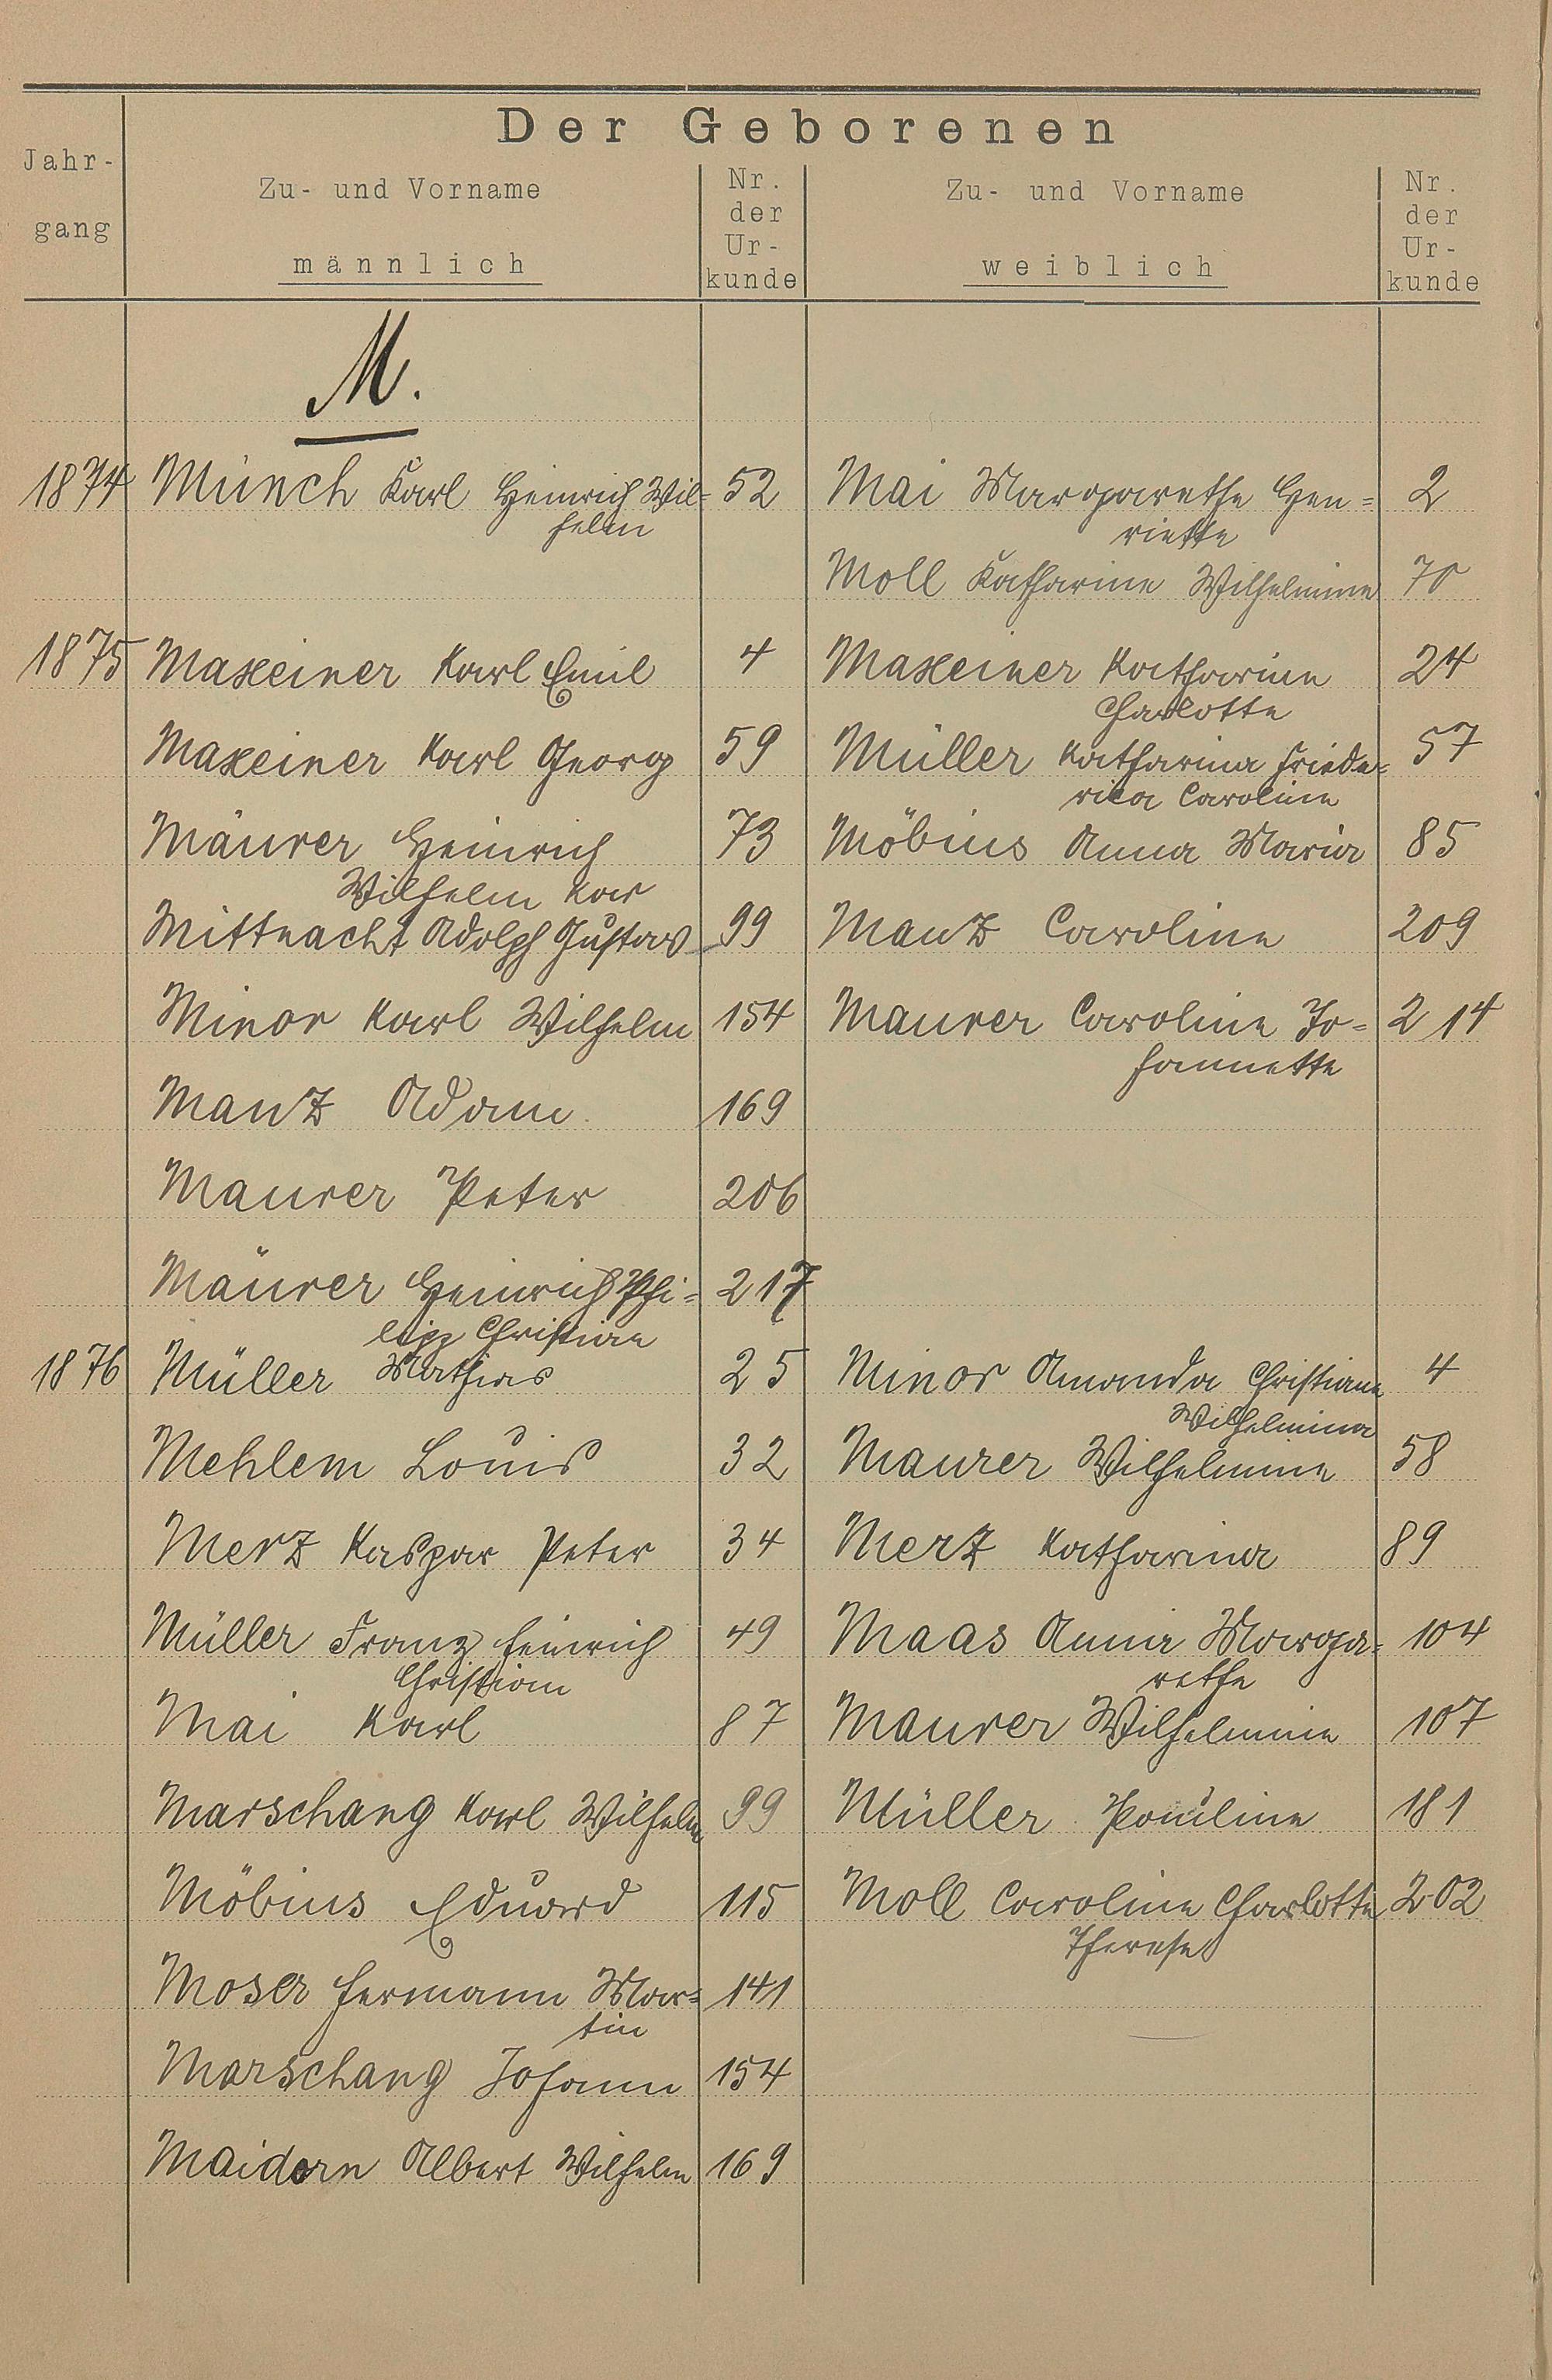 Der Geborenen
Jahr-
gang
Zu- und Vorname
männlich
Nr.
der
Ur-
kunde
Zu- und Vorname
weiblich
Nr.
der
Ur-
kunde
M.
1874 Münch Karl Heinrich Wil= 52 Mai Margarethe Hen= 2
helm riette
Moll Katharine Wilhelmine 70
1875 Maxeiner Karl Emil 4 Maxeiner Katharine 24
Charlotte
Maxeiner Karl Georg 59 Müller Katharina Friede= 57
rica Caroline
Mäurer Heinrich 73 Möbius Anna Maria 85
Wilhelm Kar
Mittnacht Adolph Gustav 99 Manz Caroline 209
Minor Karl Wilhelm 154 Maurer Caroline Jo= 214
hannette
Manz Adam 169
Maurer Peter 206
Mäurer Heinrich Phi= 217
lipp Christian
1876 Müller Mathias 25 Minor Amanda Christiane 4
Wilhelmina
Mehlem Louis 32 Maurer Wilhelmine 58
Merz Kaspar Peter 34 Merz Katharina 89
Müller Franz Heinrich 49 Maas Anna Marga= 104
Christian rethe
Mai Karl 87 Maurer Wilhelmine 107
Marschang Karl Wilhelm 99 Müller Pauline 181
Möbius Eduard 115 Moll Caroline Charlotte 202
Therese
Moser Hermann Mar= 141
tin
Marschang Johann 154
Maidorn Albert Wilhelm 169